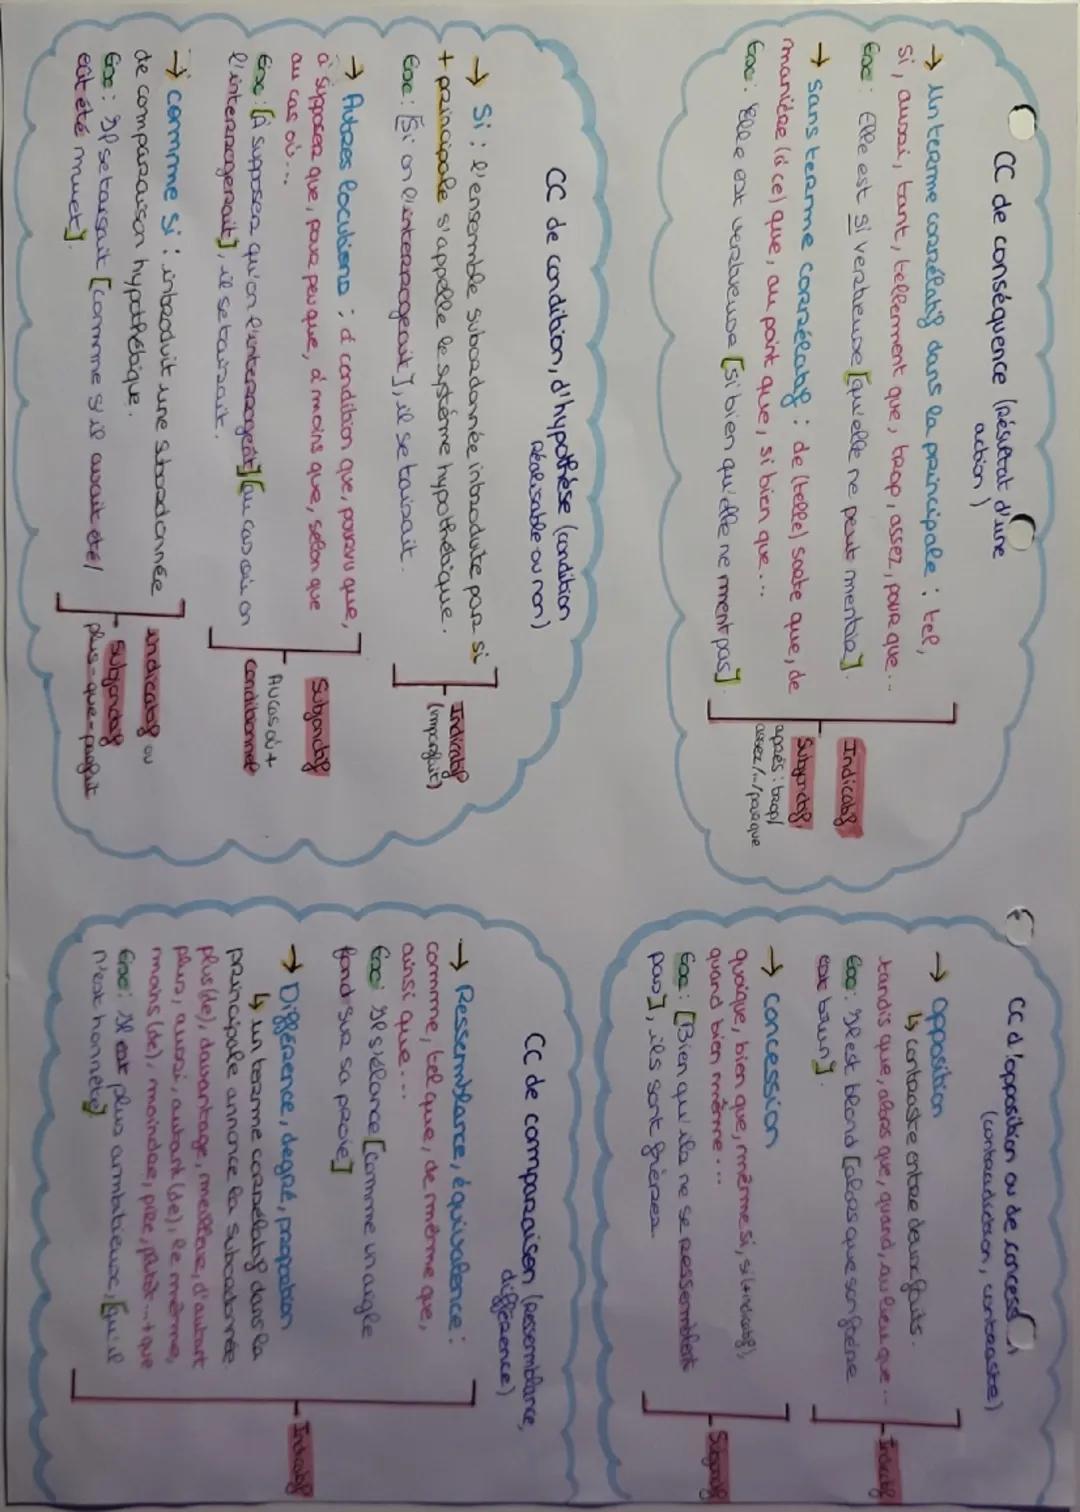 CC de conséquence (résultat d'une
action)
→ Un terme corrélatif dans la principale : tel,
si, aussi, tant, tellement que, trop, assez, pour que...
Exe : Elle est si vertueuse [qu'elle ne peut mentir].
→ sans terme corrélatif : de (telle) sorte que, de
manière (à ce) que, au point que, si bien que...
Exe : Elle est vertueuse [si bien qu'elle ne ment pas].
Indicatif
Subjonctif,
après : trop/
assez/.../pour que
CC de condition, d'hypothèse (condition
réalisable ou non)
→ Si : l'ensemble subordonnée introduite par si
+ principale s'appelle le système hypothétique.
Exe : [Si on l'interrogeait], il se taisait.
Indicatif
(imparfait)
→ Autres locutions : à condition que, pourvu que,
à supposer que, pour peu que, à moins que, selon que
au cas où...
Exe : [À supposer qu'on l'interrogeât] (au cas où on
l'interrogerait], il se taisait.
Subjonctif
Au cas où +
conditionnel
→ comme si : introduit une subordonnée
de comparaison hypothétique.
Exe : Il se taisait [comme s'il avait été/
eût été muet].
indicatif ou
subjonctif
plus-que-parfait
CC d'opposition ou de concession
(contradiction, contraste)
→ opposition
↳ contraste entre deux faits.
tandis que, alors que, quand, au lieu que...
Exe : Il est blond [alors que son frère
est brun].
Indicatif
→ concession
quoique, bien que, même si, si (+indicatif),
quand bien même...
Exe : [Bien qu'ils ne se ressemblent
pas], ils sont frères
Subjonctif
CC de comparaison (ressemblance,
différence)
→ Ressemblance, équivalence :
comme, tel que, de même que,
ainsi que...
Exe : Il s'élance [comme un aigle
fond sur sa proie]
→ Différence, degré, proportion
↳ un terme corrélatif dans la
principale annonce la subordonnée
plus (de), davantage, meilleur, d'autant
plus, aussi, autant (de), le même,
moins (de), moindre, pire, plutôt... + que
Exe : Il est plus ambitieux, [qu'il
n'est honnête].
Indicatif